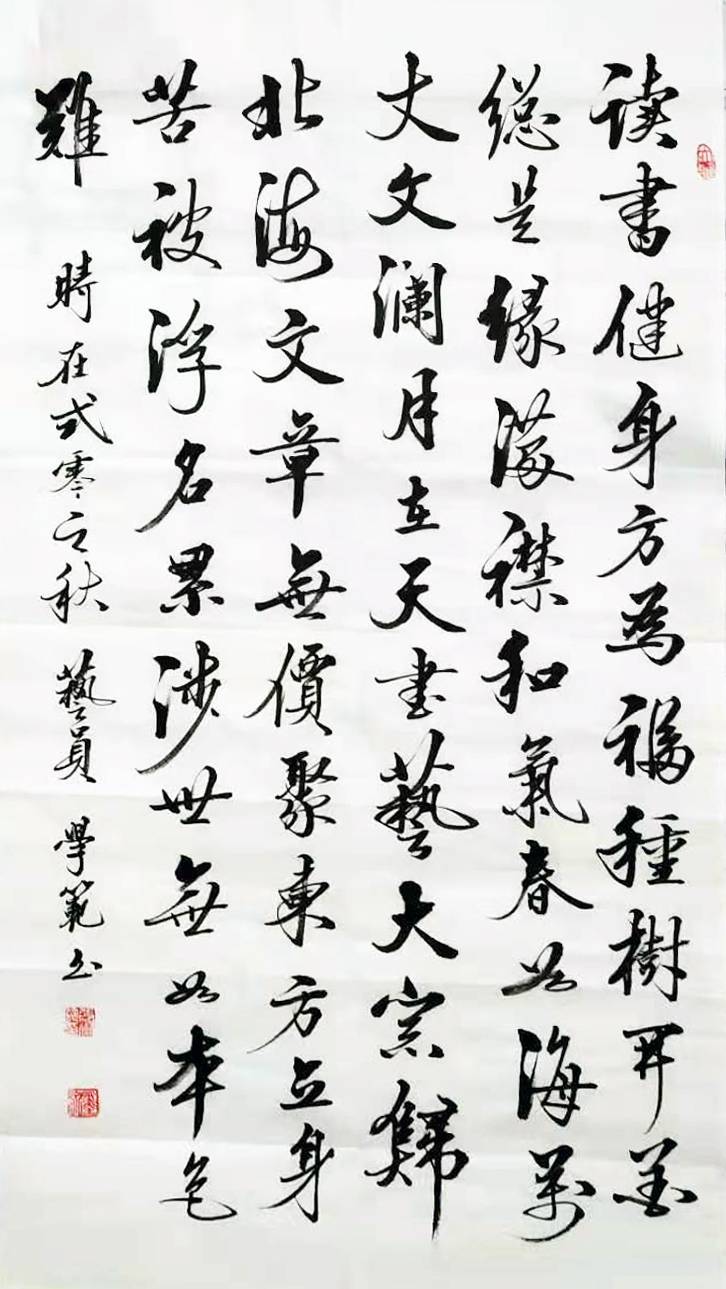 读書健身方為福種樹开花
總是緣滿襟和氣春如海萬
丈文瀾月在天書藝大宗歸
北海文章無價聚東方立身
苦被浮名累涉世無如本色
難 時在弍零之秋 藝員 學範書